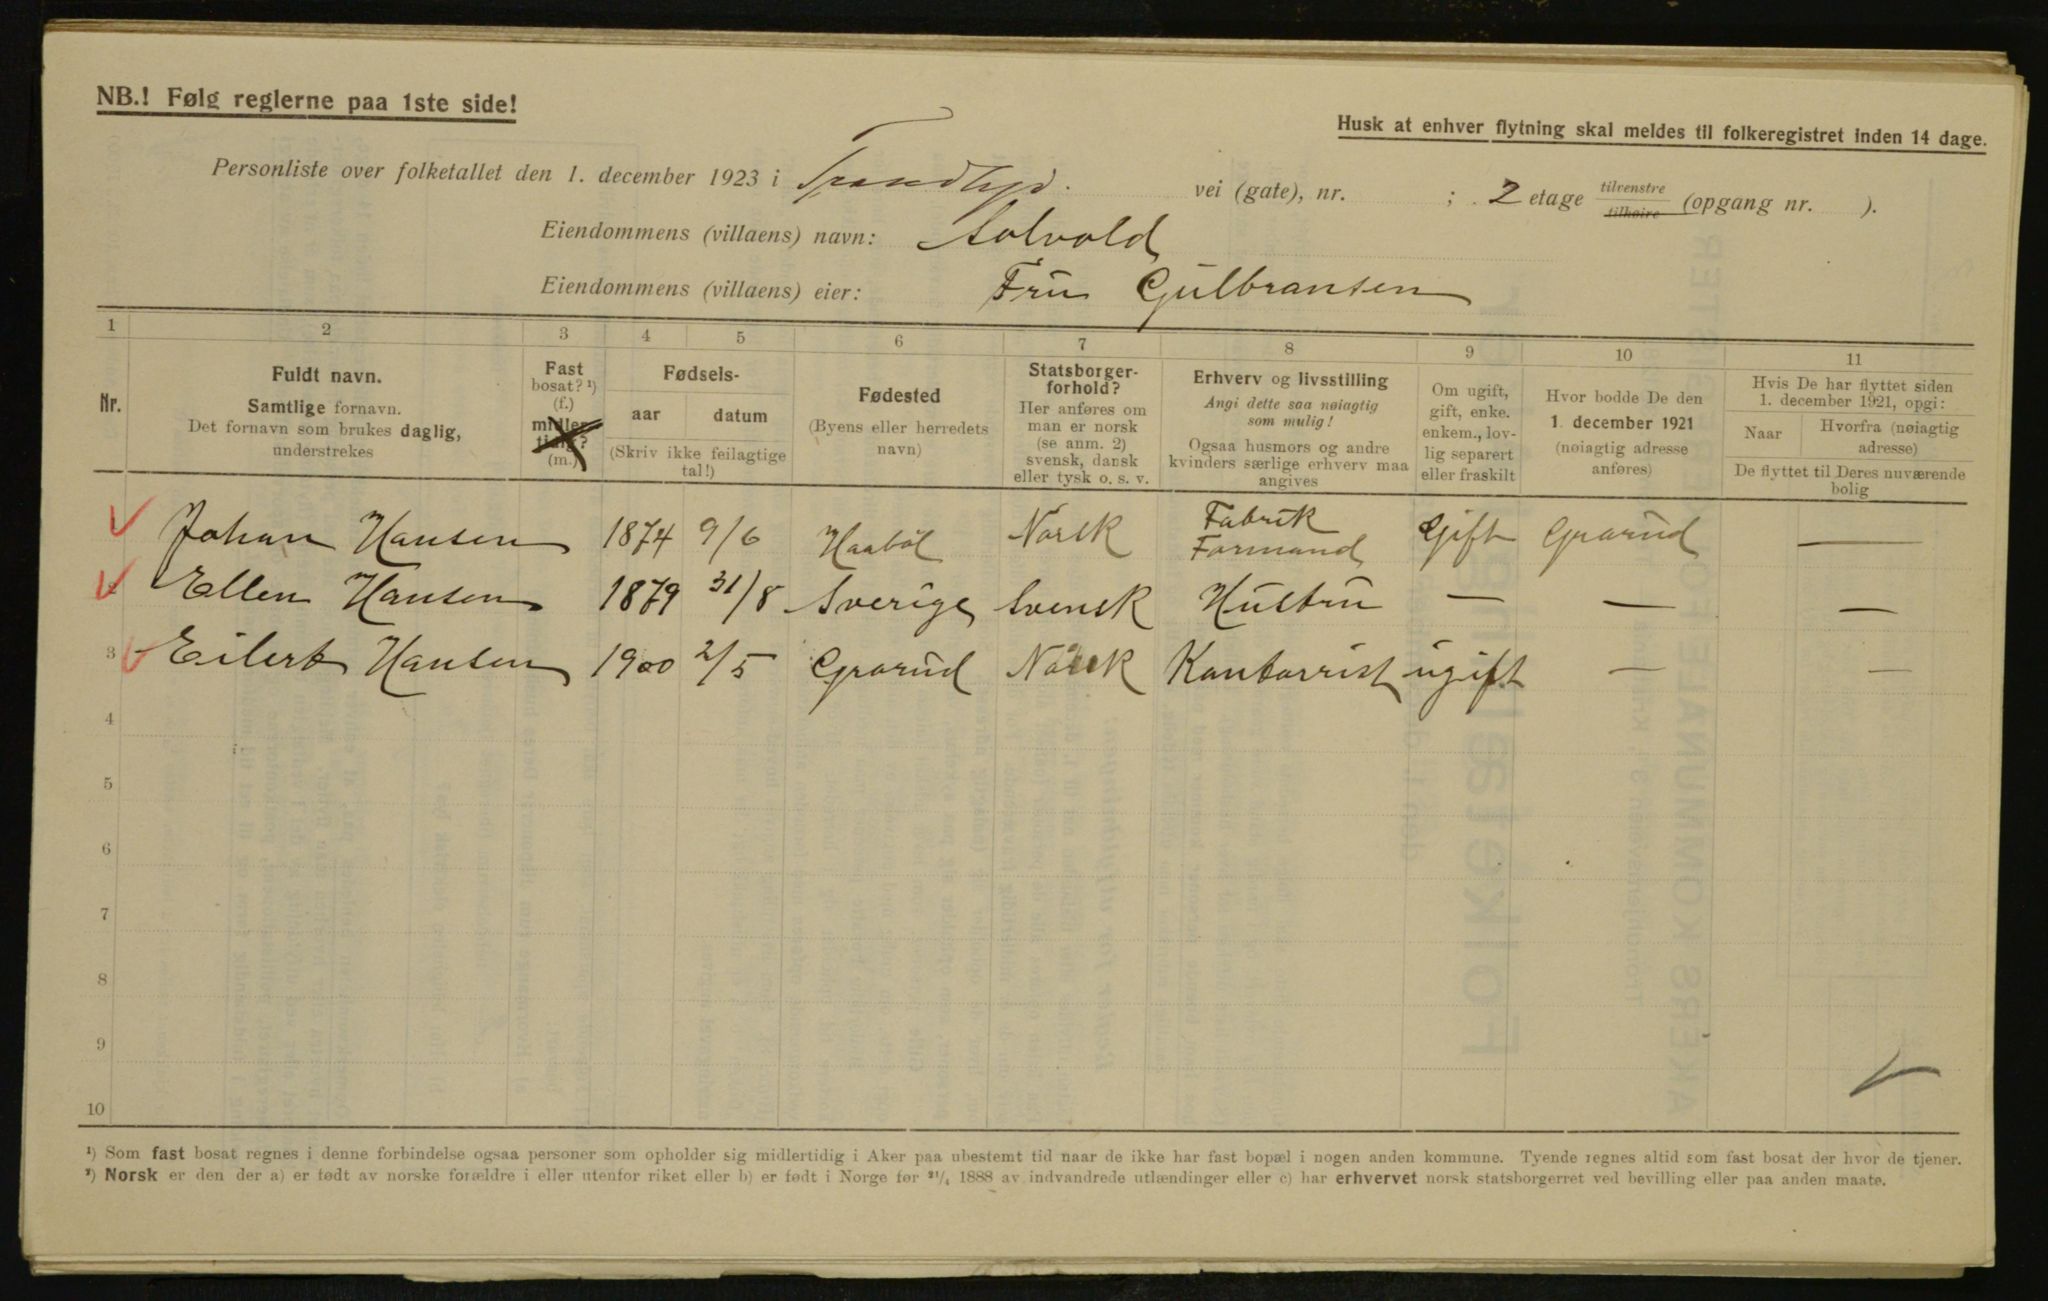 NB.! Følg reglerne paa 1ste side!
Husk at enhver flytning skal meldes til folkeregistret inden 14 dage.
Personliste over folketallet den 1. december 1923 i vei (gate), nr. ; 2 etage tilvenstre tilhøire (opgang nr. ).
Eiendommens (villaens) navn: Solvold
Eiendommens (villaens) eier: Fru Gulbransen
1 2 3 4 5 6 7 8 9 10 11
Nr.
Fuldt navn.
Samtlige fornavn.
Det fornavn som brukes daglig,
understrekes
Fast
bosat? ¹)
(f.)
midler-
tidig?
(m.)
Fødsels-
aar datum
(Skriv ikke feilagtige
tal!)
Fødested
(Byens eller herredets
navn)
Statsborger-
forhold?
Her anføres om
man er norsk
(se anm. 2)
svensk, dansk
eller tysk o. s. v.
Erhverv og livsstilling
Angi dette saa nøiagtig
som mulig!
Ogsaa husmors og andre
kvinders særlige erhverv maa
angives
Om ugift,
gift, enke.
enkem., lov-
lig separert
eller fraskilt
Hvor bodde De den
1. december 1921
(nøiagtig adresse
anføres)
Hvis De har flyttet siden
1. december 1921, opgi:
Naar Hvorfra (nøiagtig
adresse)
De flyttet til Deres nuværende
bolig
Johan Hansen 1874 9/6 Haabøl Norsk Fabrik Formand Gift Grorud —
Ellen Hansen 1879 31/8 Sverige Svensk Hustru — — —
3 Eilert Hansen 1900 2/5 Grorud Norsk Kontorrist ugift — —
4
5
6
7
8
9
10
¹) Som fast bosat regnes i denne forbindelse ogsaa personer som opholder sig midlertidig i Aker paa ubestemt tid naar de ikke har fast bopæl i nogen anden kommune. Tyende regnes altid som fast bosat der hvor de tjener.
²) Norsk er den der a) er født av norske forældre i eller utenfor riket eller b) er født i Norge før ²¹/₄ 1888 av indvandrede utlændinger eller c) har erhvervet norsk statsborgerret ved bevilling eller paa anden maate.